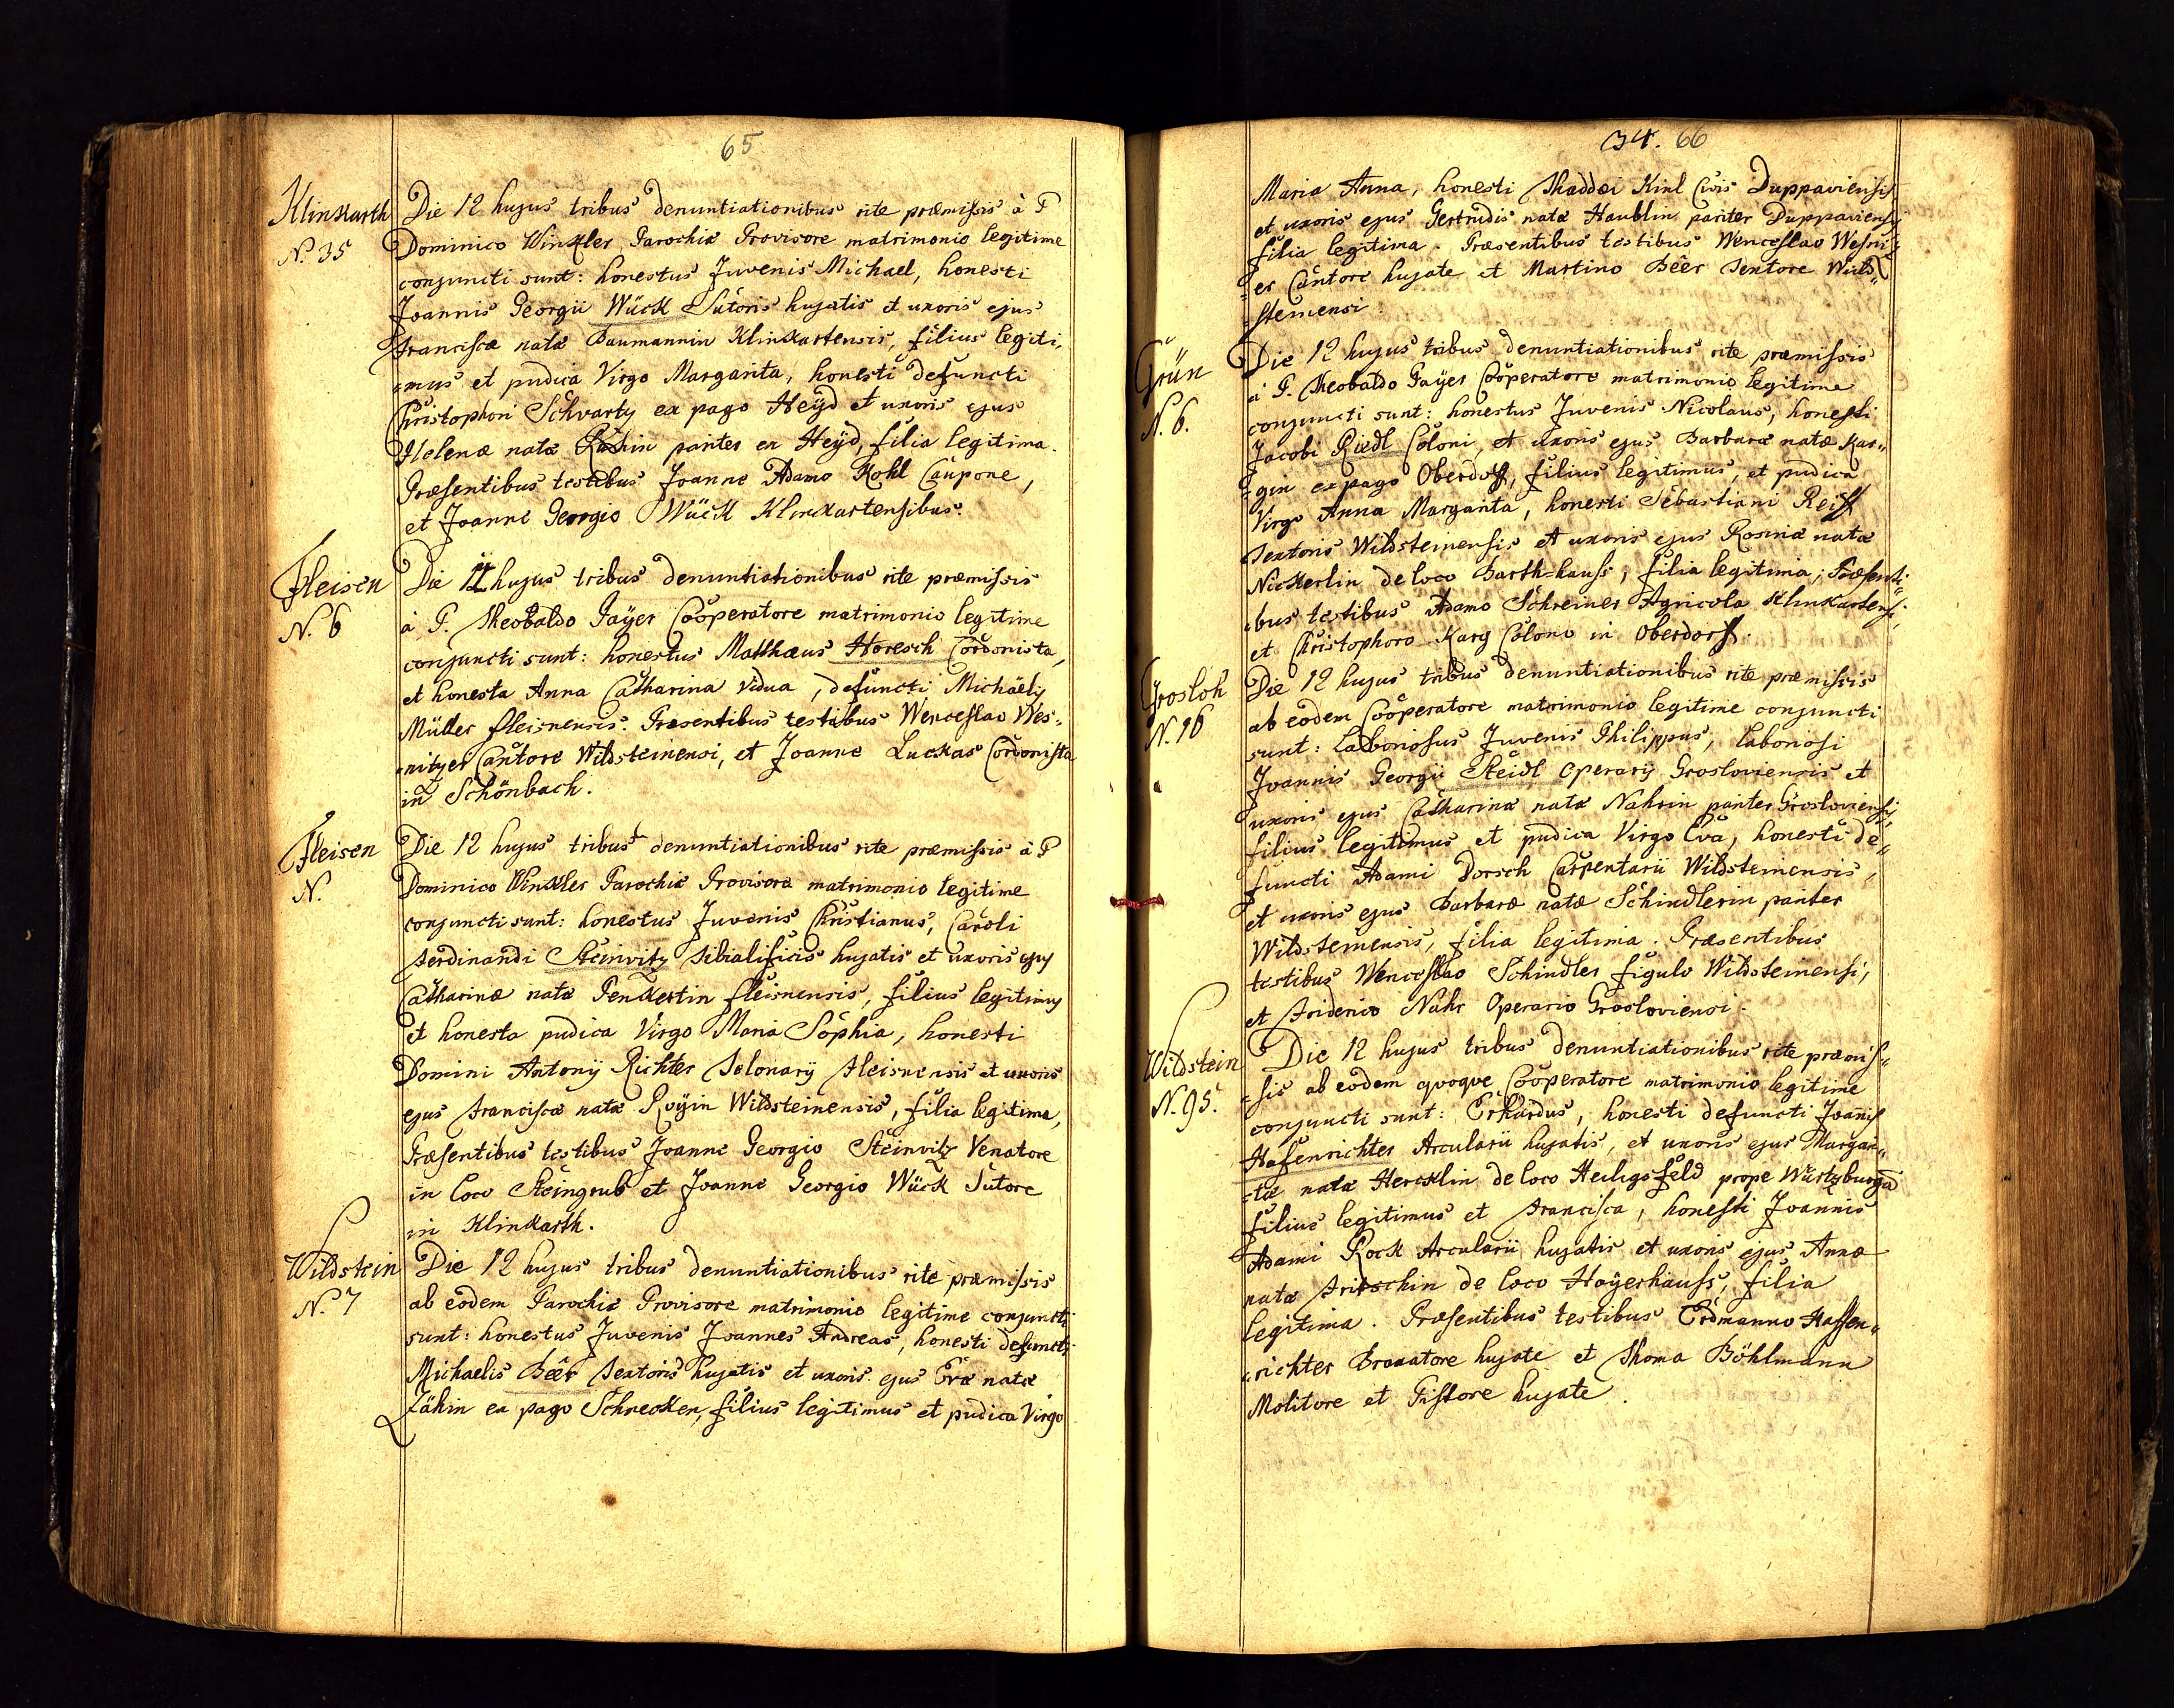 65
Klinkarth
N. 35
Die 12 hujus tribus denuntiationibus rite præmissis à P
Dominico Winkler Parochiæ Provisore matrimonio legitime
conjuncti sunt: honestus Juvenis Michael, honesti
Joannis Georgii Wück Sutoris hujatis et uxoris ejus
Franciscæ natæ Baumannin Klinkartensis, filius legiti,
mus et pudica Virgo Margarita, honesti defuncti
Christophori Schvartz ex pago Heÿd et uxoris ejus
Helenæ natæ pariter ex Heÿd, filia legitima.
Præsentibus testibus Joanne Adamo Kohl Caupone,
et Joanne Georgio Wück Klinckartensibus.
Fleisen
N. 6
Die hujus tribus denuntiationibus rite præmissis
à P. Theobaldo Paÿer Cooperatore matrimonio legitime
conjuncti sunt: honestus Matthæus Horesch Cordonista,
et honesta Anna Catharina Vidua, defuncti Michaëlis
Müller fleisnensis. Præsentibus testibus Wenceslao Wes,
nitzer Cantore Wildsteinensi, et Joanne Luckas Cordonista
in Schönbach.
Fleisen
N.
Die 12 hujus tribus denuntiationibus rite præmissis à P
Dominico Winkler Parochiæ Provisore matrimonio legitime
conjuncti sunt: honestus Juvenis Christianus, Caroli
Ferdinandi Steinvitz tibialificis hujatis et uxoris ejus
Catharinæ natæ Penkertin fleisnensis, filius legitimus
et honesta pudica Virgo Maria Sophia, honesti
Domini Antonij Richter Telonarij Fleisnensis et uxoris
ejus Franciscæ natæ Roÿin Wildsteinensis, filia legitima,
Præsentibus testibus Joanne Georgio Steinvitz Venatore
in loco Steingrub et Joanne Georgio Wück Sutore
in Klinkarth.
Wildstein
N. 7
Die 12 hujus tribus denuntiationibus rite præmissis
ab eodem Parochiæ Provisore matrimonio legitime conjuncti
sunt: honestus Juvenis Joannes Andreas, honesti defuncti
Michaelis Beêr Textoris hujatis et uxoris ejus Evæ natæ
Zähin ex pago Schnecken, filius legitimus et pudica Virgo
34. 66
Maria Anna, honesti Thaddæi Kinl Civis Duppaviensis,
et uxoris ejus Gertrudis natæ Haublin pariter Duppaviensis
filia legitima. Præsentibus testibus Wenceslao Wesnitz
er Cantore hujate et Martino Beêr Textore Wild,,
steinensi.
Grün
N. 6.
Die 12 hujus tribus denuntiationibus rite præmissis
à P. Theobaldo Paÿer Cooperatore matrimonio legitime
conjuncti sunt: honestus Juvenis Nicolaus, honesti
Jacobi Riedl Coloni, et uxoris ejus Barbaræ natæ Kar,,
gin ex pago Oberdorf, filius legitimus, et pudica
Virgo Anna Margarita, honesti Sebastiani Reiff
Textoris Wildsteinensis et uxoris ejus Rosinæ natæ
Nickerlin de loco Barth-hauss, filia legitima; Præsenti,,
bus testibus Adamo Schreiner Agricola Klinkartensi,
et Christophoro Karg Colono in Oberdorf.
Grosloh
N. 16
Die 12 hujus tribus denuntiationibus rite præmissis
ab eodem Cooperatore matrimonio legitime conjuncti
sunt: Laboriosus Juvenis Philippus, laboriosi
Joannis Georgii Steidl Operarij Grosloviensis et
uxoris ejus Catharinæ natæ Nahrin pariter Grosloviensis,
filius legitimus et pudica Virgo Eva, honesti de,,
functi Adami Dorsch Carpentarii Wildsteinensis,
et uxoris ejus Barbaræ natæ Schindlerin pariter
Wildsteinensis, filia legitima. Præsentibus
testibus Wenceslao Schindler figulo Wildsteinensi,
et Friderico Nahr Operario Grosloviensi.
Wildstein
N. 95.
Die 12 hujus tribus denuntiationibus rite præmis,,
sis ab eodem quoque Cooperatore matrimonio legitime
conjuncti sunt: Erhardus, honesti defuncti Joanis
Hasenrichter Arcularii hujatis, et uxoris ejus Margari,,
tæ natæ Hercklin de loco Heiligsfeld prope Würtzburgū
filius legitimus et Francisca, honesti Joannis
Adami Rock Arcularii hujatis et uxoris ejus Annæ
natæ Fritschin de loco Haÿerhauss, filia
legitima. Præsentibus testibus Erdmanno Hassen,,
richter Braxatore hujate et Thoma Böhlmann
Molitore et Pistore hujate.